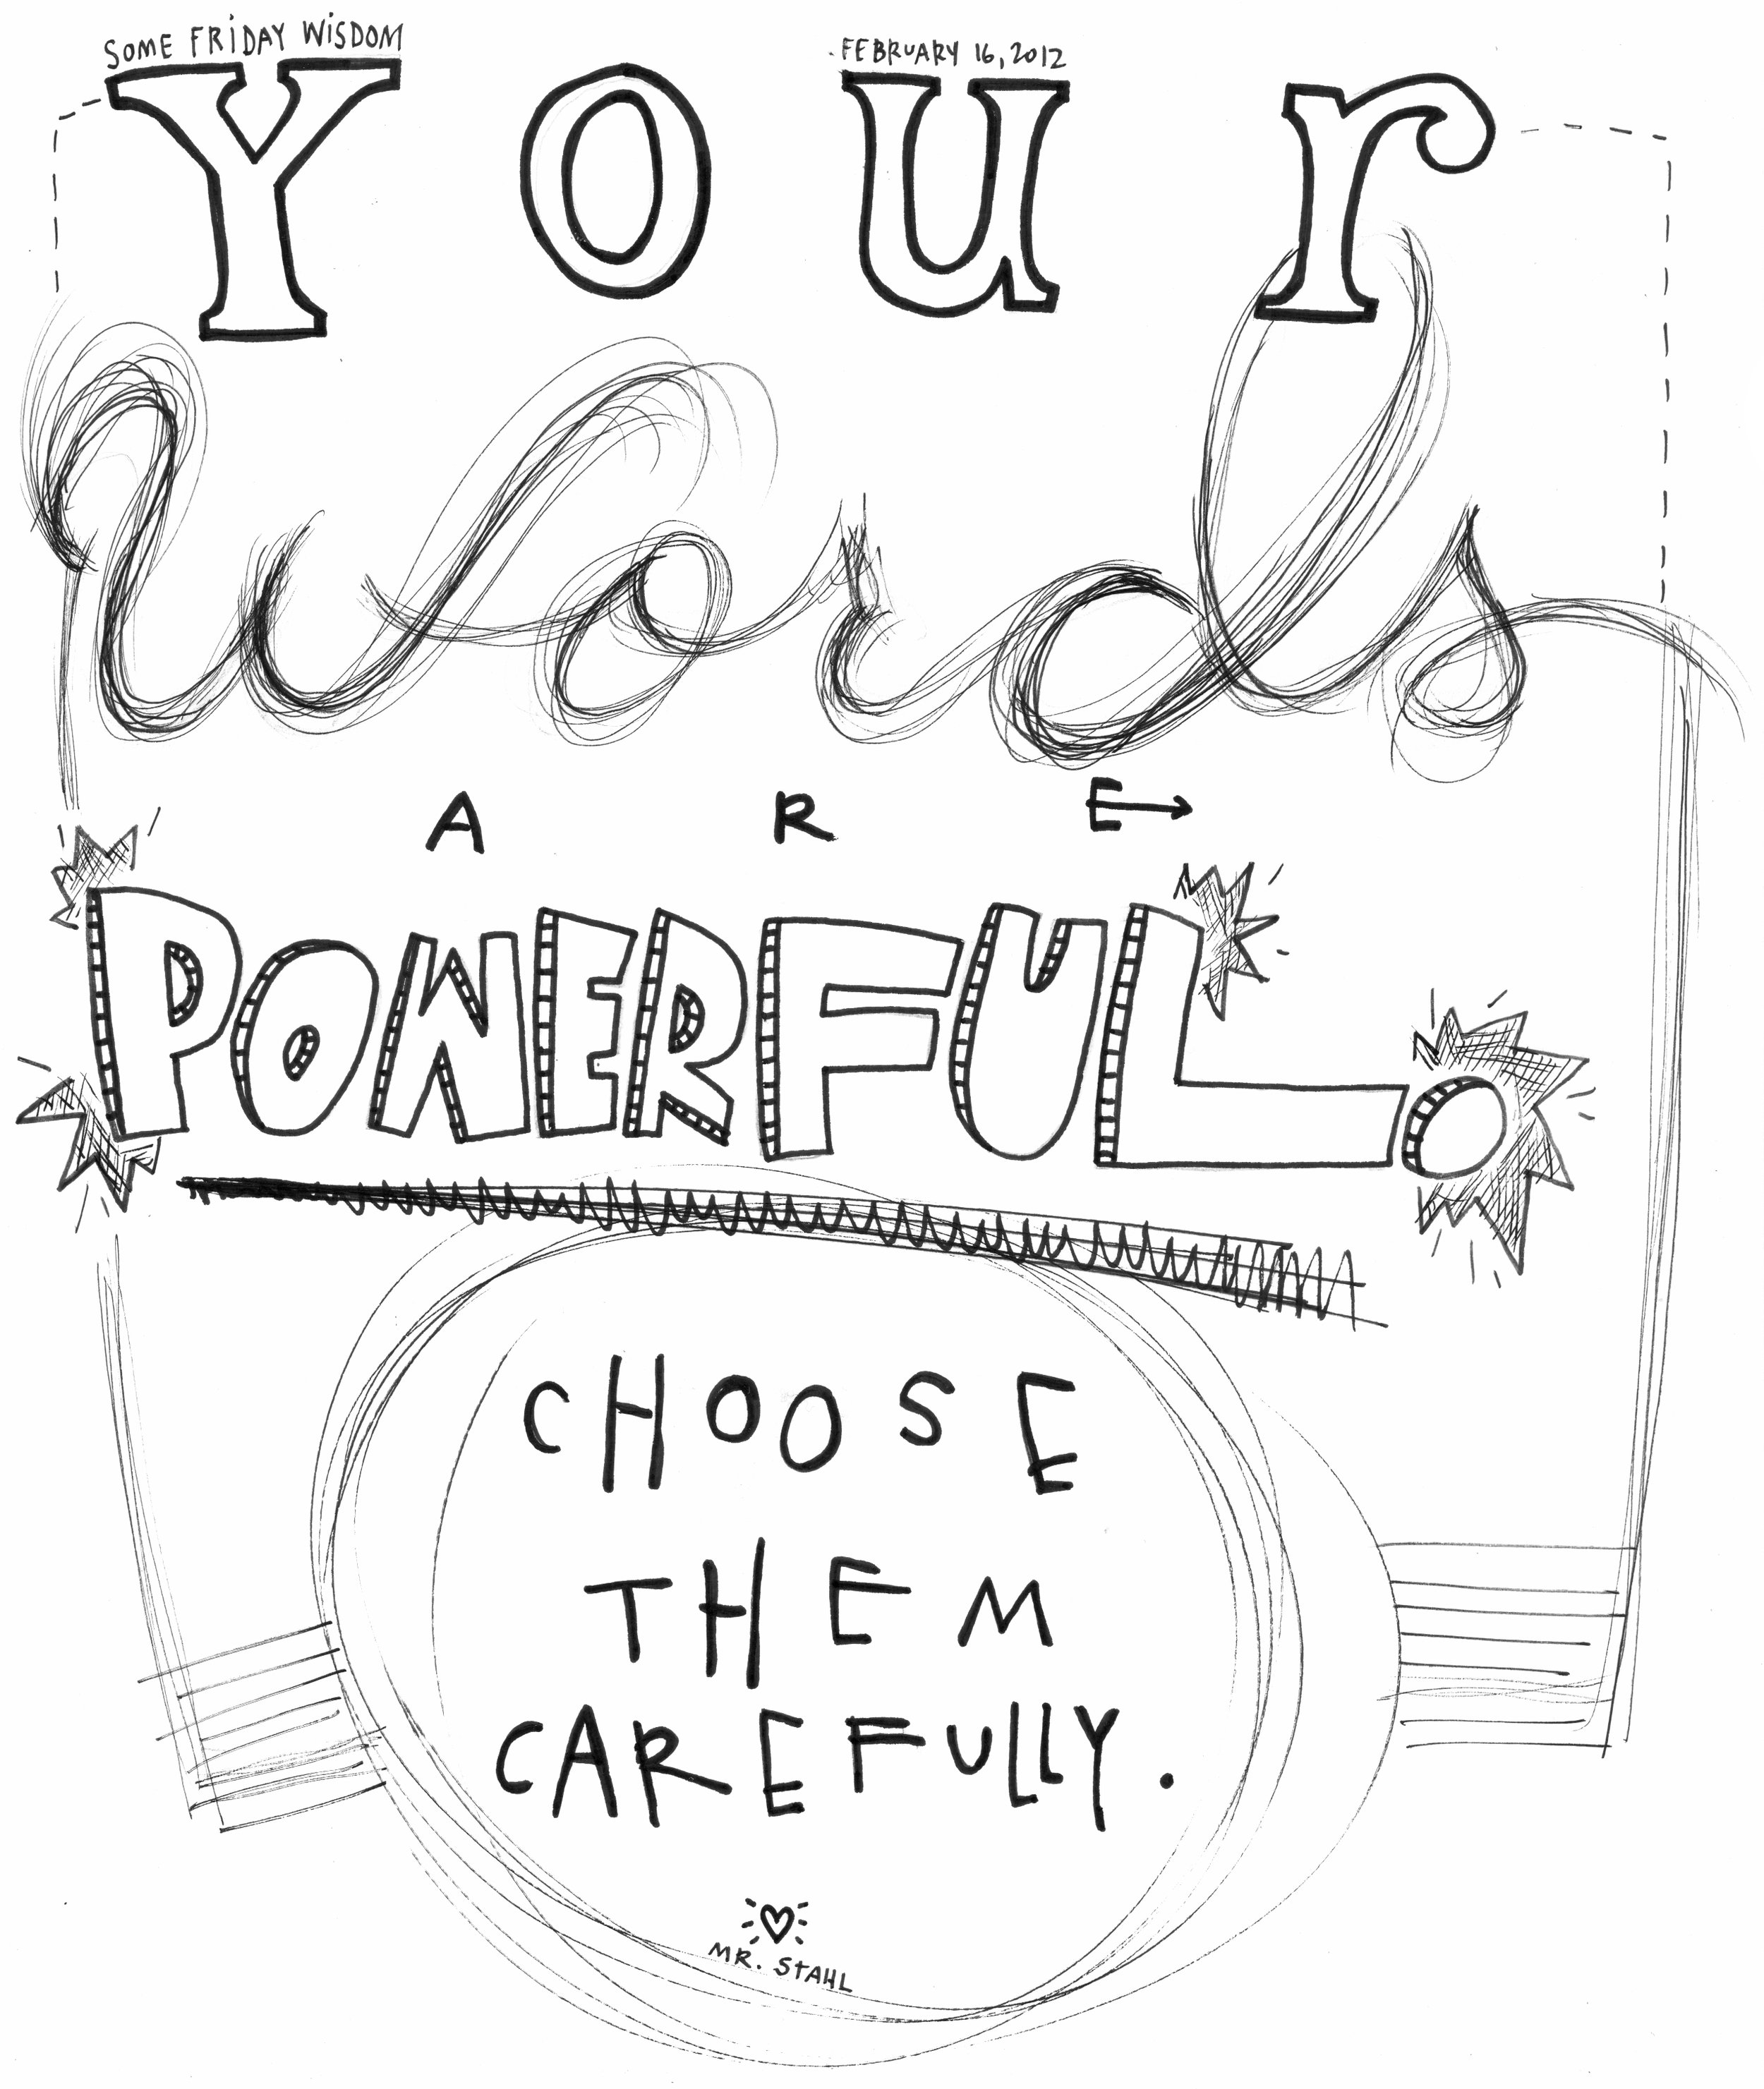 SOME FRIDAY WISDOM
FEBRUARY 16, 2012
Your
Words
ARE
POWERFUL.
CHOOSE
THEM
CAREFULLY.
MR. STAHL